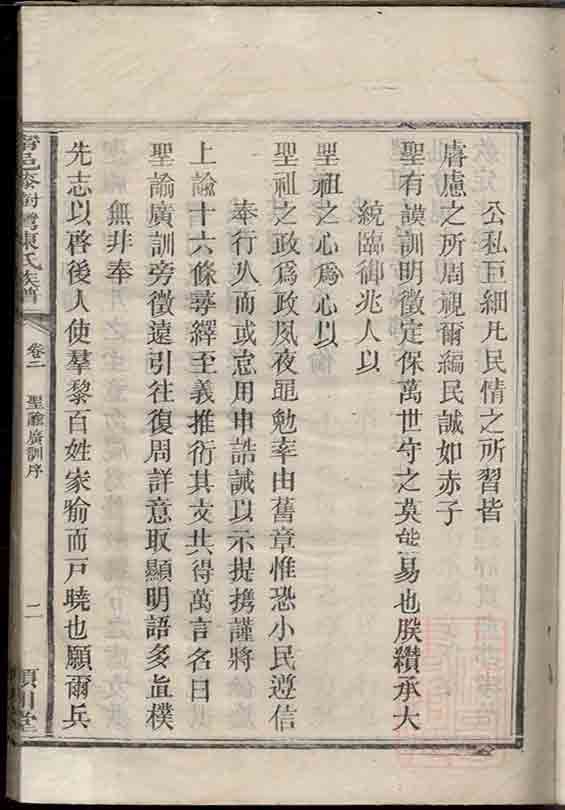 公私巨細凡民情之所習皆
睿慮之所周視爾編民誠如赤子
聖有謨訓明徵定保萬世守之莫能易也朕纘承大
統臨御兆人以
聖祖之心爲心以
聖祖之政爲政夙夜黽勉率由舊章惟恐小民遵信
奉行久而或怠用申誥誡以示提撕謹將
上諭十六條尋繹至義推衍其文共得萬言名曰
聖諭廣訓旁徵遠引往復周詳意取顯明語多直樸
無非奉
先志以啓後人使羣黎百姓家喻而戶曉也願爾兵
陳氏族譜
卷二
聖諭廣訓序
二
潁川堂